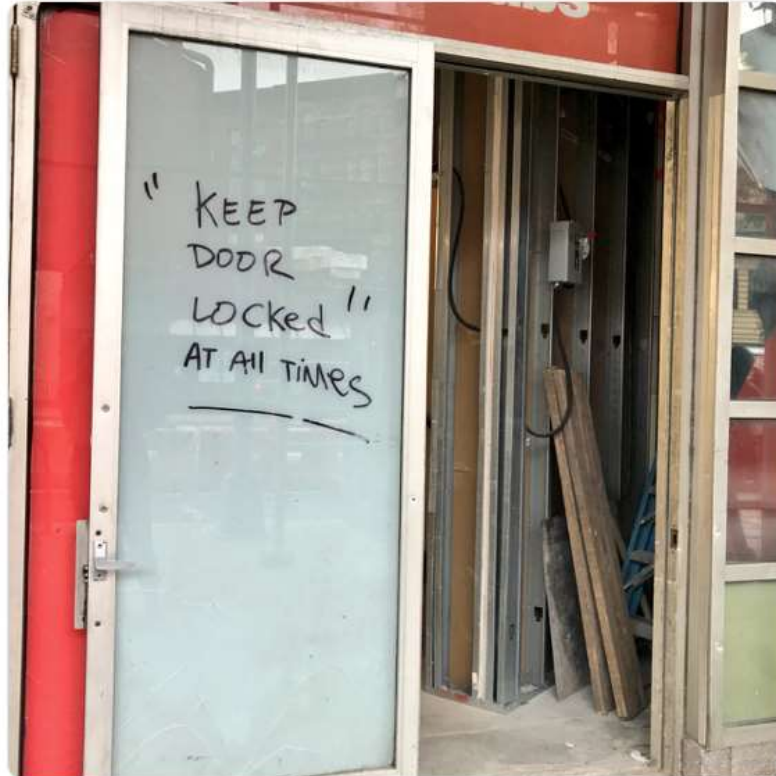 " KEEP
DOOR
LOCKed "
AT All TiMeS